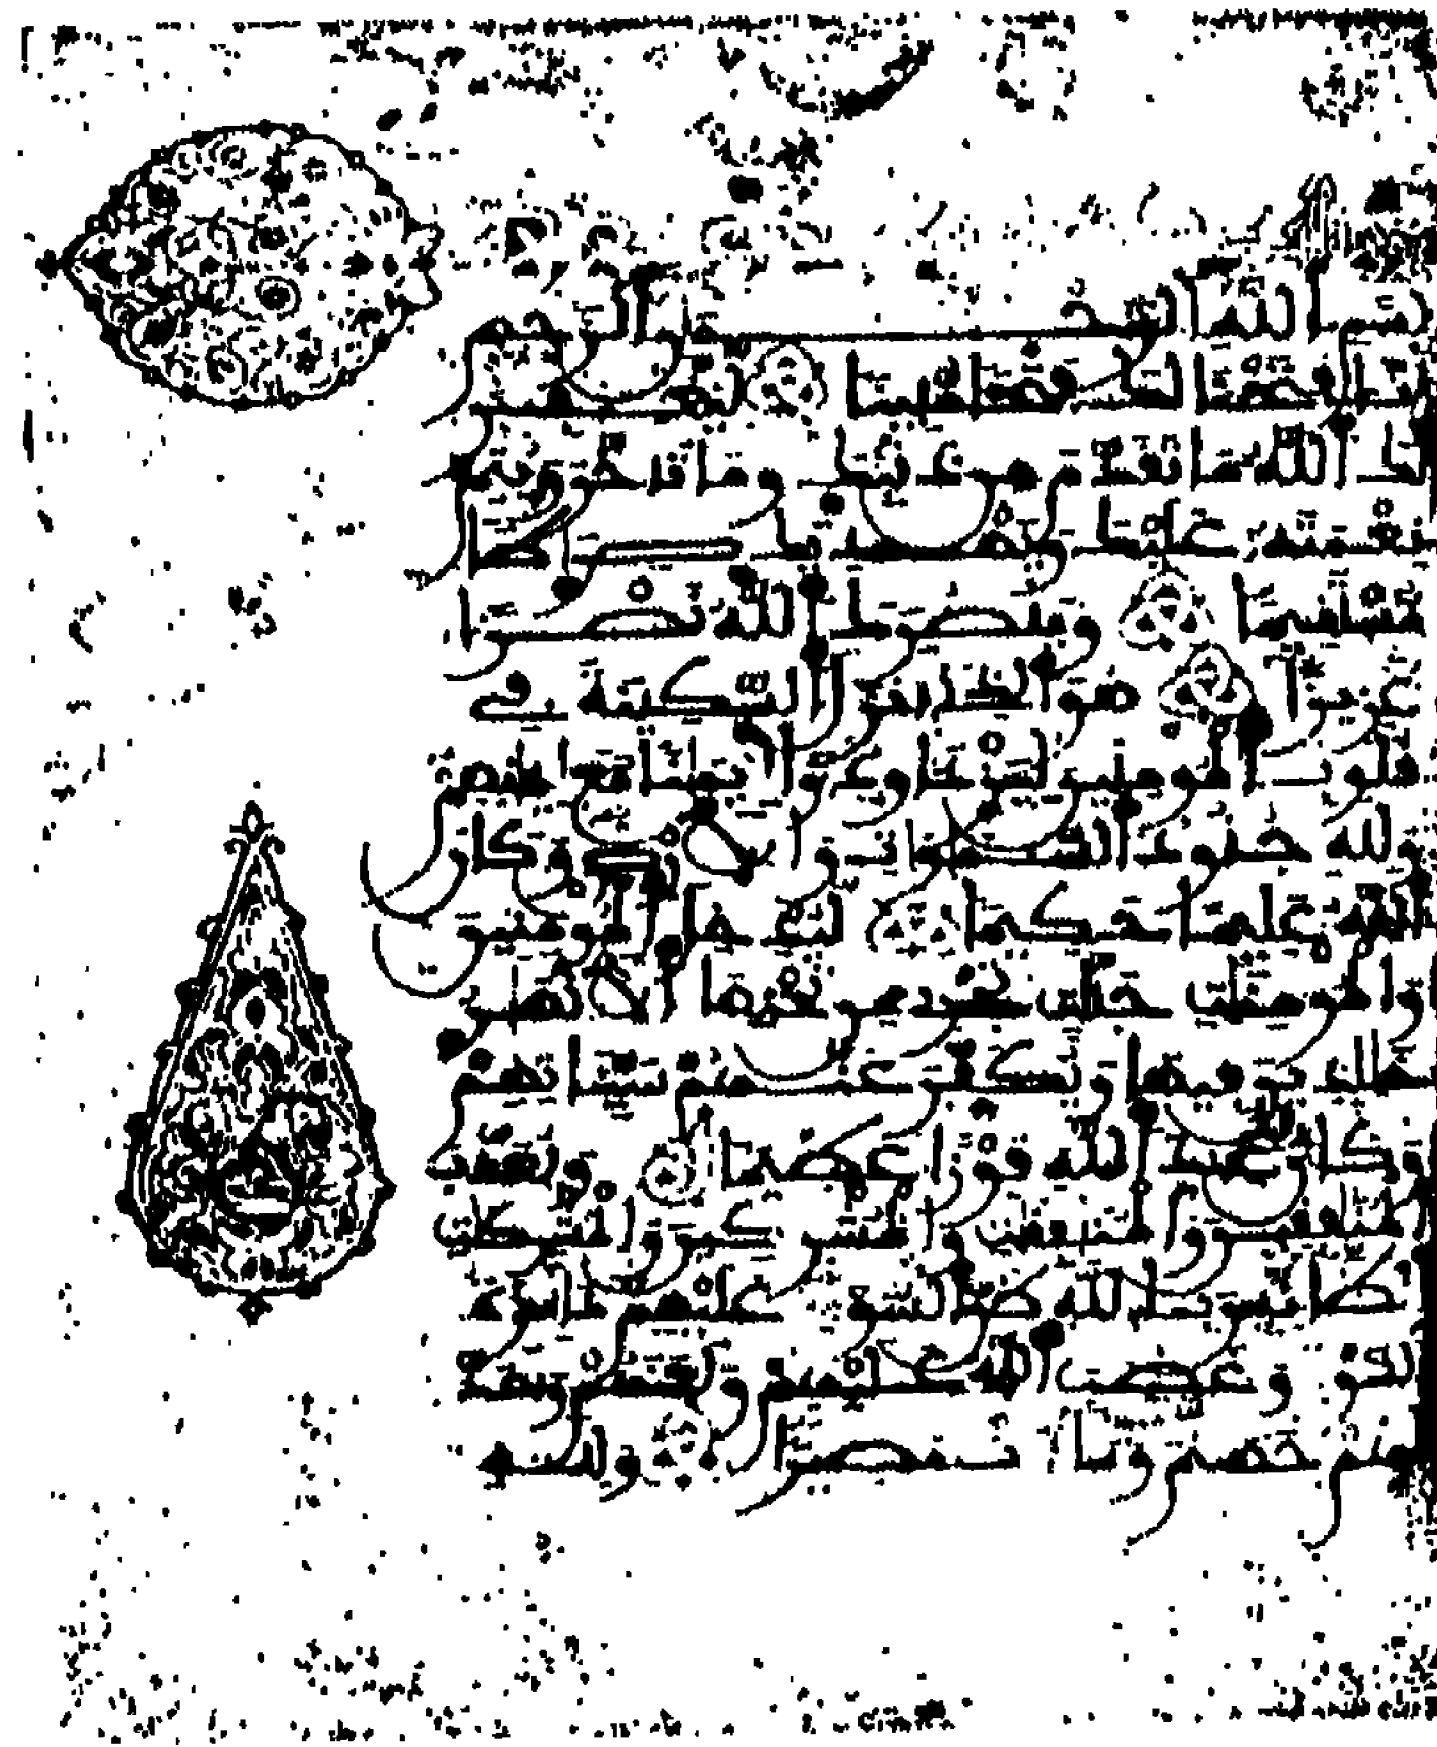 بسم الله الرحمن الرحيم
انا فتحنا لك فتحا مبينا ليغفر
لك الله ما تقدم من ذنبك وما تاخر ويتم
نعمته عليك ويهديك صرطا
مستقيما وينصرك الله نصرا
عزيزا هو الذي انزل السكينة في
قلوب المومنين ليزدادوا ايمنا مع ايمنهم
ولله جنود السموات والارض وكان
الله عليما حكيما ليدخل المومنين
والمومنت جنت تجري من تحتها الانهر
خلدين فيها ويكفر عنهم سياتهم
وكان ذلك عند الله فوزا عظيما ويعذب
المنفقين والمنفقت والمشركين والمشركت
الظانين بالله ظن السوء عليهم دائرة
السوء وغضب الله عليهم ولعنهم واعد
لهم جهنم وساءت مصيرا ولله